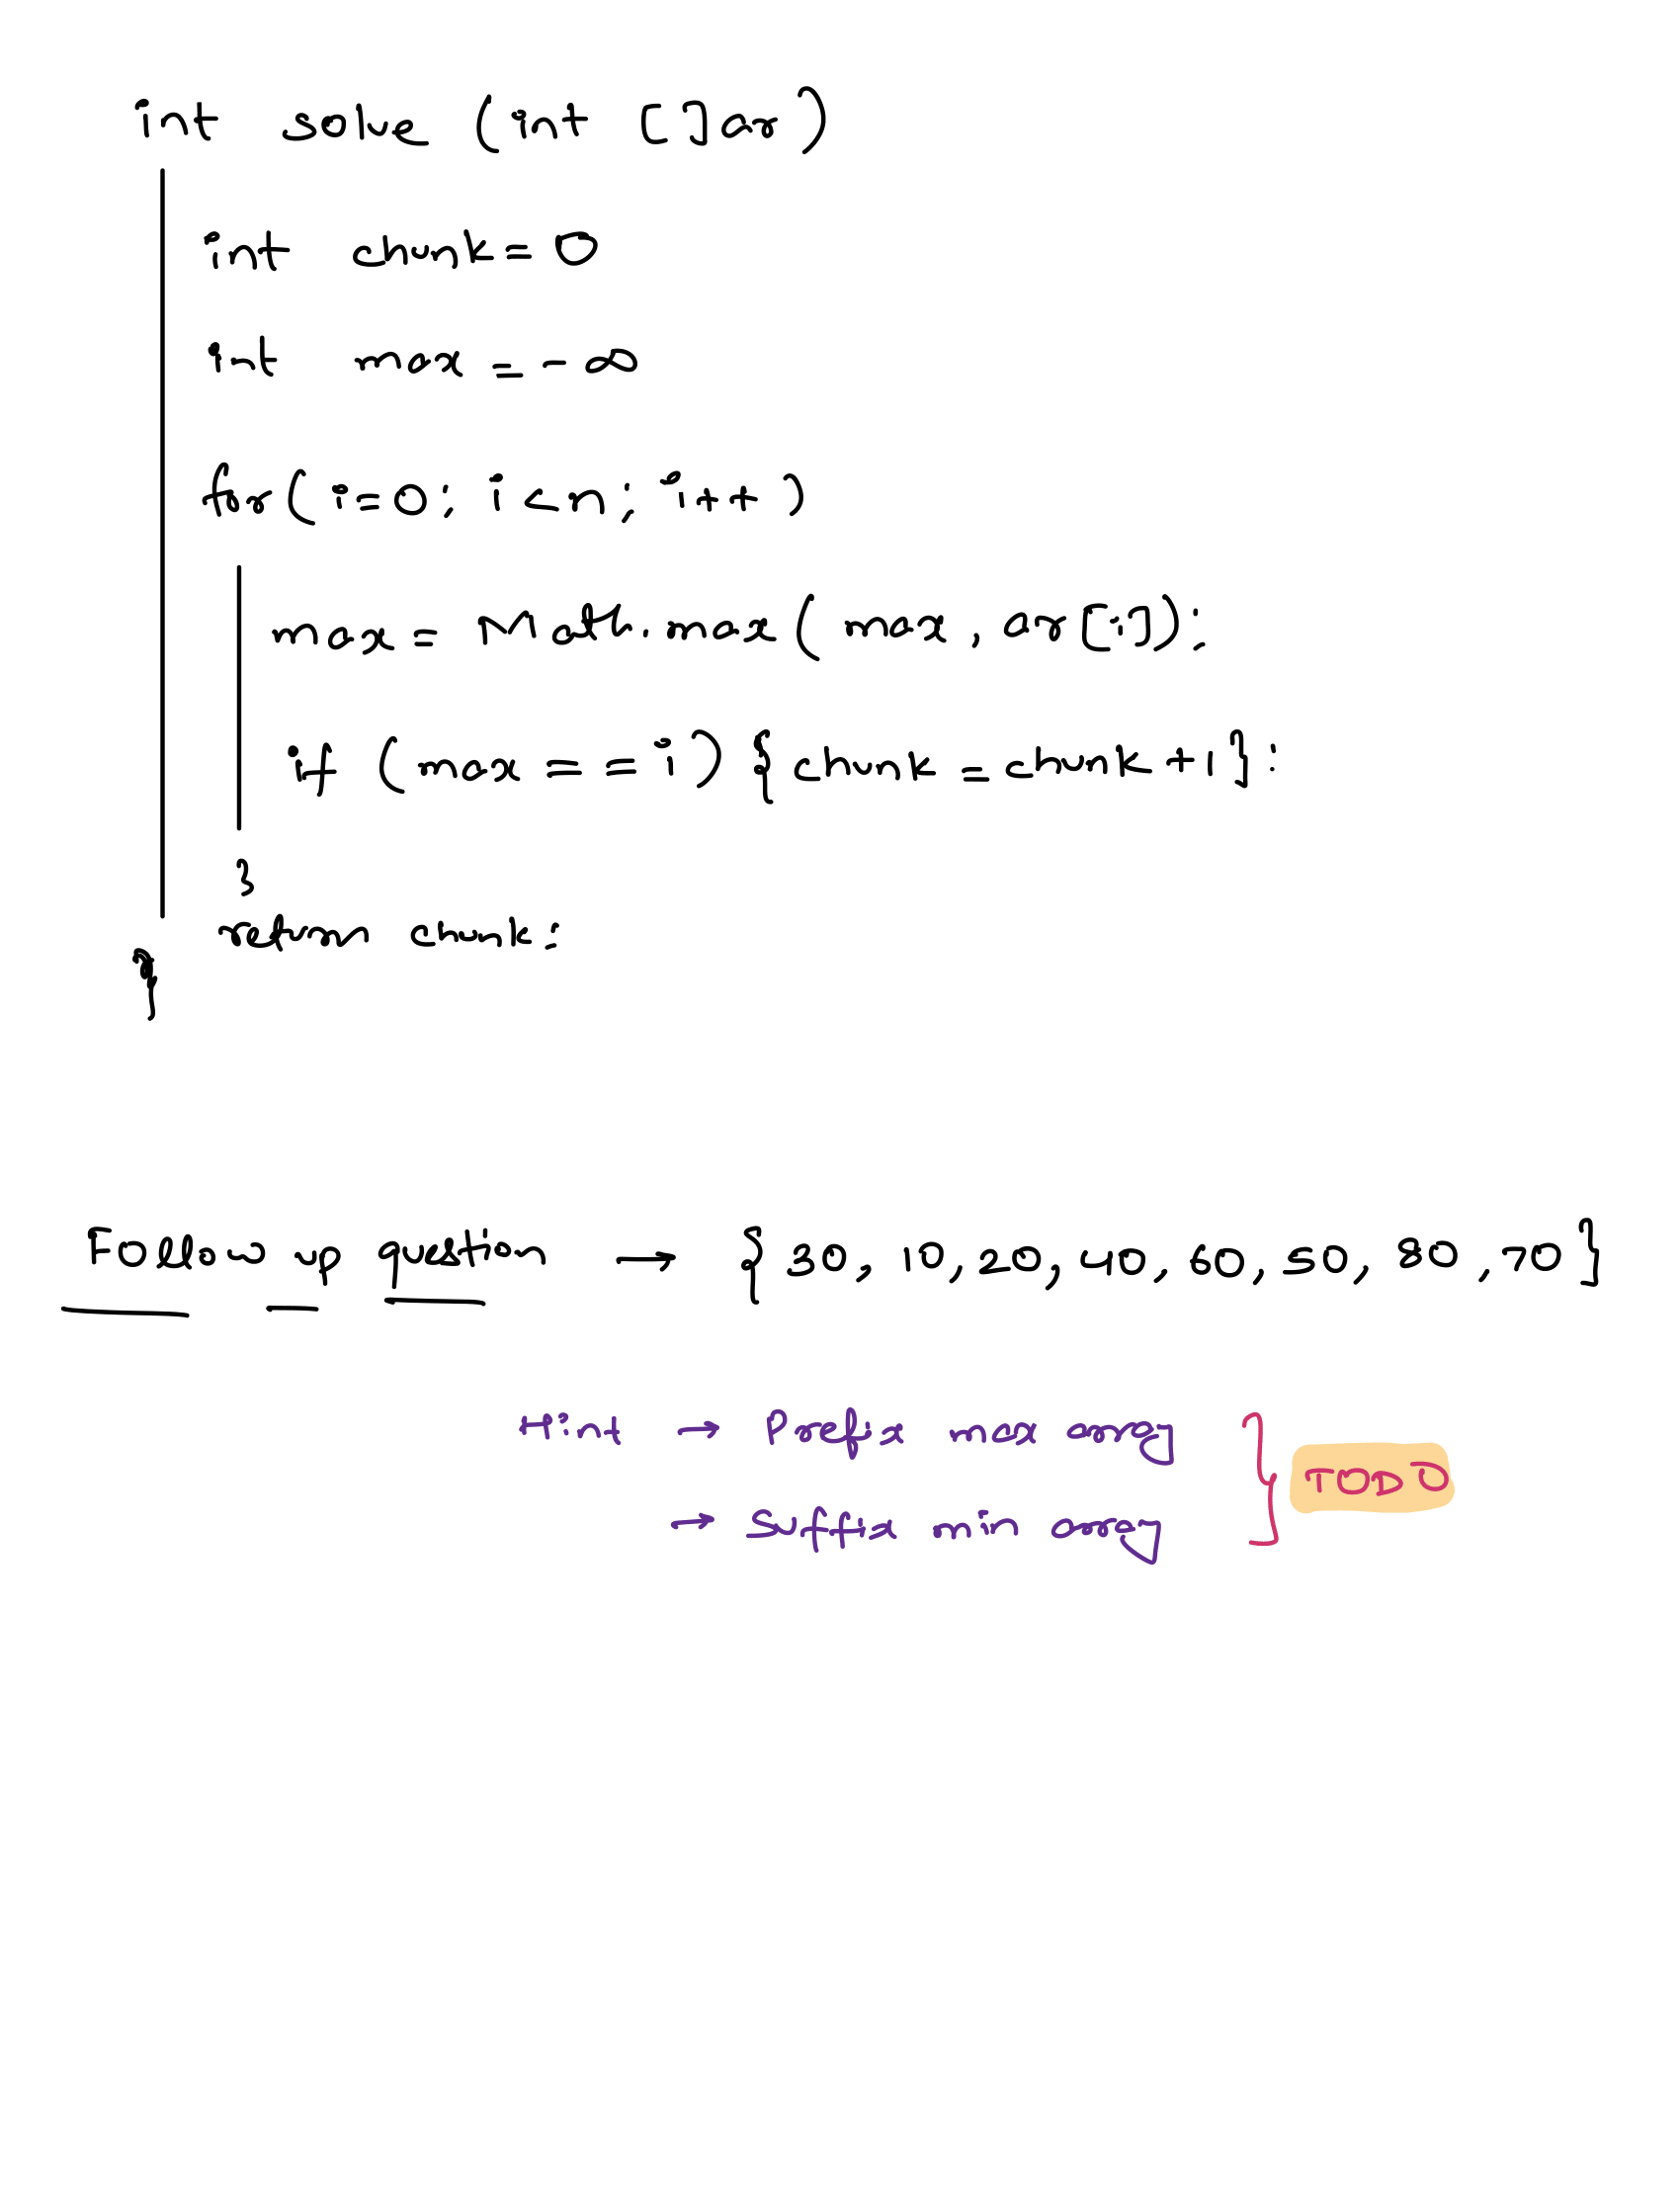 int solve (int []ar)
int chunk = 0
int max = - ∞
for( i=0; i<n; i++ )
max = Math.max( max, ar[i]);
if (max == i) { chunk = chunk +1 };
}
return chunk;
}
Follow up question → { 30, 10, 20, 40, 60, 50, 80, 70 }
Hint → Prefix max array
→ Suffix min array
TODO